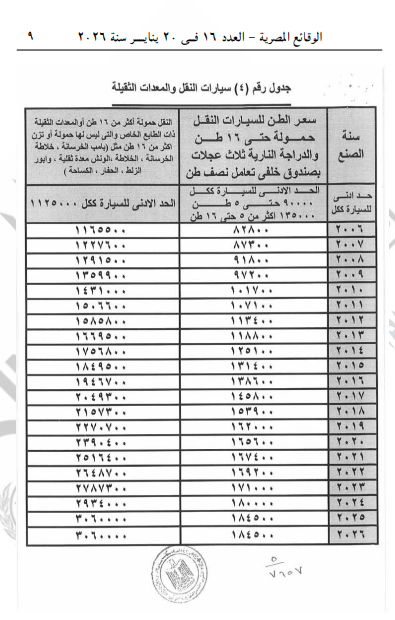 الوقائع المصرية – العدد ١٦ فى ٢٠ يناير سنة ٢٠٢٦ ٩
جدول رقم (٤) سيارات النقل والمعدات الثقيلة
سنة الصنع
سعر الطن للسيارات النقل
حمولة حتى ١٦ طن
والدراجة النارية ثلاث عجلات
بصندوق خلفى تعامل نصف طن
النقل حمولة أكثر من ١٦ طن أوالمعدات الثقيلة
ذات الطابع الخاص والتى ليس لها حمولة أو تزن
اكثر من ١٦ طن مثل (بامب الخرسانة ، خلاطة
الخرسانة ، الخلاطة ،الونش معدة ثقيلة ، وابور
الزلط ، الحفار ، الكساحة )
حد ادنى للسيارة ككل
الحد الادنى للسيارة ككل
٩٠٠٠٠ حتى ٥ طن
١٣٥٠٠٠ اكثر من ٥ حتى ١٦ طن
الحد الادنى للسيارة ككل ١١٢٥٠٠٠
٢٠٠٦ ٨٢٨٠٠ ١١٦٥٥٠٠
٢٠٠٧ ٨٧٣٠٠ ١٢٢٧٦٠٠
٢٠٠٨ ٩١٨٠٠ ١٢٩١٥٠٠
٢٠٠٩ ٩٧٢٠٠ ١٣٥٩٩٠٠
٢٠١٠ ١٠١٧٠٠ ١٤٣١٠٠٠
٢٠١١ ١٠٧١٠٠ ١٥٠٦٦٠٠
٢٠١٢ ١١٣٤٠٠ ١٥٨٥٨٠٠
٢٠١٣ ١١٨٨٠٠ ١٦٦٩٥٠٠
٢٠١٤ ١٢٥١٠٠ ١٧٥٦٨٠٠
٢٠١٥ ١٣١٤٠٠ ١٨٤٩٥٠٠
٢٠١٦ ١٣٨٦٠٠ ١٩٤٦٧٠٠
٢٠١٧ ١٤٥٨٠٠ ٢٠٤٩٣٠٠
٢٠١٨ ١٥٣٩٠٠ ٢١٥٧٣٠٠
٢٠١٩ ١٦٢٠٠٠ ٢٢٧٠٧٠٠
٢٠٢٠ ١٦٥٦٠٠ ٢٣٩٠٤٠٠
٢٠٢١ ١٦٧٤٠٠ ٢٥١٦٤٠٠
٢٠٢٢ ١٦٩٢٠٠ ٢٦٤٨٧٠٠
٢٠٢٣ ١٧١٠٠٠ ٢٧٨٧٣٠٠
٢٠٢٤ ١٨٠٠٠٠ ٢٩٣٤٠٠٠
٢٠٢٥ ١٨٤٥٠٠ ٣٠٦٠٠٠٠
٢٠٢٦ ١٨٤٥٠٠ ٣٠٦٠٠٠٠